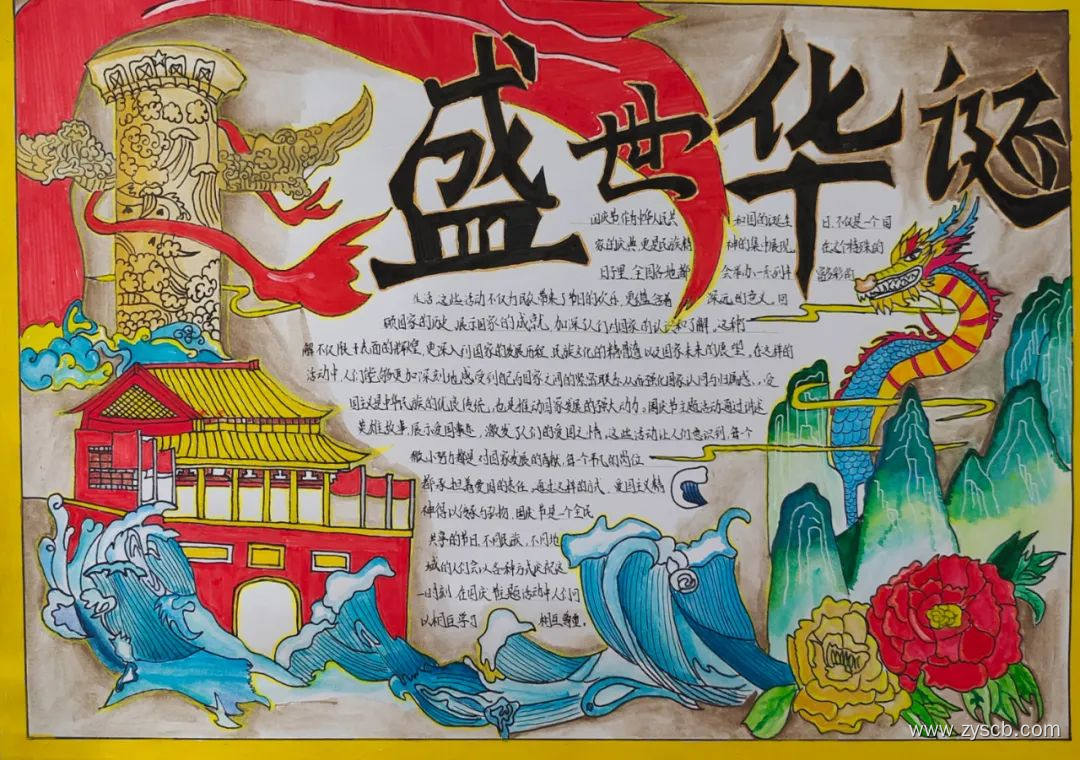 盛世华诞
国庆节作为中华人民共和国的诞生日,不仅是一个国
家的庆典,更是民族精神的集中展现。在这个特殊的
日子里,全国各地都会举办一系列丰富多彩的
生活,这些活动不仅为民众带来了节日的欢乐,更蕴含着深远的意义。回
顾国家的历史,展示国家的成就,加深人们对国家的认识和了解。这种
解不仅限于表面的辉煌,更深入到国家的发展历程、民族文化的精髓以及国家未来的展望。在这样的
活动中,人们能够更加深刻地感受到自己与国家之间的紧密联系,从而强化国家认同与归属感。爱
国主义是中华民族的优良传统,也是推动国家发展的强大动力。国庆节主题活动通过讲述
英雄故事,展示爱国事迹,激发了人们的爱国之情。这些活动让人们意识到,每个
微小努力都是对国家发展的贡献,每个平凡的岗位
都承担着爱国的责任。通过这样的方式,爱国主义精
神得以传承与弘扬。国庆节是一个全民
共享的节日,不同民族、不同地
域的人们会以各种方式庆祝这
一时刻。在国庆主题活动中,人们可
以相互学习 相互尊重。
www.zyscb.com